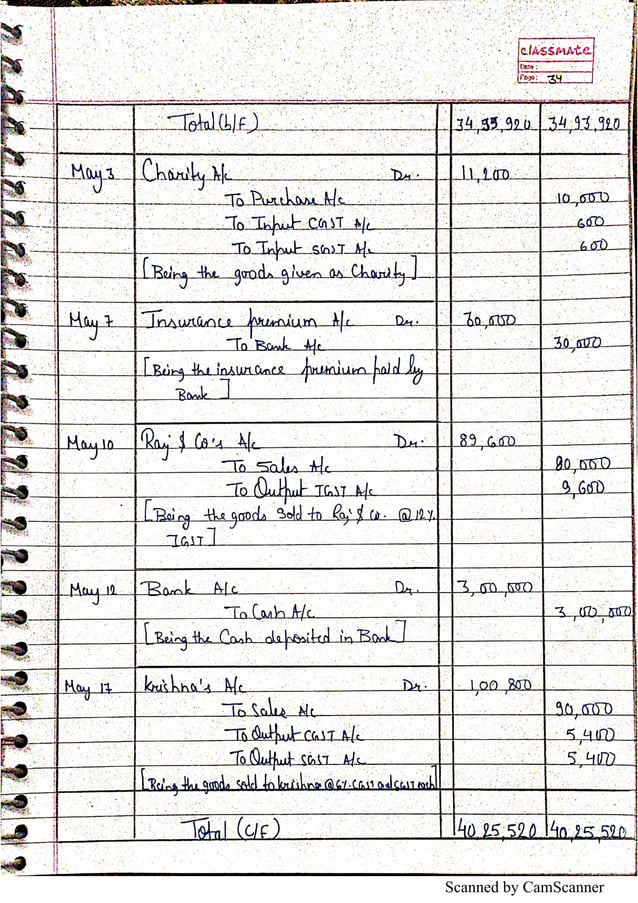 classmate
Date :
Page : 34
Total (b/F) 34,93,920 34,93,920
May 3 Charity A/c Dr. 11,200
To Purchase A/c 10,000
To Input CGST A/c 600
To Input SGST A/c 600
[Being the goods given as Charity]
May 7 Insurance premium A/c Dr. 30,000
To Bank A/c 30,000
[Being the insurance premium paid by
Bank]
May 10 Raj & Co's A/c Dr. 89,600
To Sales A/c 80,000
To Output IGST A/c 9,600
[Being the goods sold to Raj & Co. @12%
IGST]
May 12 Bank A/c Dr. 3,00,000
To Cash A/c 3,00,000
[Being the Cash deposited in Bank]
May 17 Krishna's A/c Dr. 1,00,800
To Sales A/c 90,000
To Output CGST A/c 5,400
To Output SGST A/c 5,400
[Being the goods sold to krishna @6% CGST and SGST each]
Total (C/F) 40,25,520 40,25,520
Scanned by CamScanner